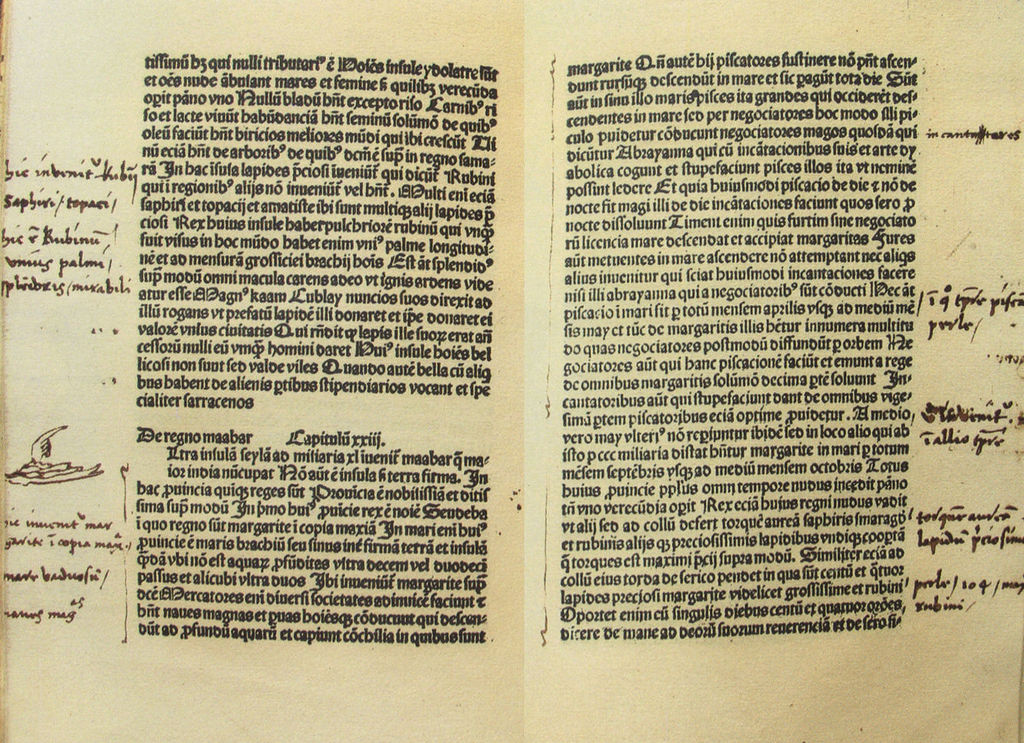 tissimū bꝫ qui nulli tributariꝰ ē Hoīes insule ydolatre sūt
et oēs nude ābulant mares et femine ꝫ quilibꝫ verecūda
opit pāno vno Nullū bladū hn̄t excepto riso Carnibꝰ ri
so et lacte viuūt habūdanciā hn̄t seminū solūmō de quibꝰ
oleū faciūt hn̄t biricios meliores mūdi qui ibi crescūt Ui
nū eciā hn̄t de arboribꝰ de quibꝰ dcm̄ ē sup̄ in regno sama-
rā In hac īsula lapides p̄ciosi īueniūt̄ qui dicūt̄ Rubini
qui ī regionibꝰ alijs nō inueniūt̄ vel hn̄t̄. Multi eni eciā
saphiri et topacij et amatiste ibi sunt multiqꝫ alij lapides p̄
ciosi Rex huius insule habet pulchriorē rubinū qui vnqꝫ
fuit visus in hoc mūdo habet enim vniꝰ palme longitudi-
nē et ad mensurā grossiciei brachij hoīs Est āt splendidꝰ
sup̄ modū omni macula carens adeo vt ignis ardens vide
atur esse Magnꝰ kaam Cublay nuncios suos direxit ad
illū rogans vt prefatū lapidē illi donaret et ip̄e donaret ei
valorē vnius ciuitatis Qui rn̄dit qꝫ lapis ille suoꝝ erat an̄
cessorū nulli eū vmqꝫ homini daret Huiꝰ insule hoīes bel
licosi non sunt sed valde viles Quando autē bella cū aliq
bus habent de alienis ꝑtibus stipendiarios vocant et spe
cialiter sarracenos
De regno maabar Capitulū xxiij.
Ultra insulā seylā ad miliaria xl īuenit̄ maabar q̄ ma-
ior india nūcupat̄ Nō aūt ē insula ꝫ terra firma. In
hac ꝓuincia quiqꝫ reges sūt Prouīcia ē nobilissīa et ditis
sima sup̄ modū In p̄mo huiꝰ ꝓuīcie rex ē noīe Seudeba
ī quo regno sūt margarite ī copia maxīa In mari enī huiꝰ
ꝓuincie ē maris brachiū seu sinus int̄ firmā terrā et insulā
q̄ndā vbi nō est aquaꝝ ꝓfūditas vltra decem vel duodecī
passus et alicubi vltra duos Ibi īueniūt̄ margarite sup̄
dcē Mercatores enī diuersi societates adīuicē faciunt ⁊
hn̄t naues magnas et ꝑuas hoīesqꝫ cōducunt qui descen-
dūt ad ꝓfundū aquarū et capiunt cōchilia in quibus sunt
hic invenit̄ Rubinj
Saphiri / topaci /
hic ē Rubinū
vnius palmi /
splēdoris / mirabili
hic inuenit̄ mar
garite ī copia maxī.
mare vadosū /
naues mag
margarite Qn̄ autē hij piscatores sustinere nō pn̄t ascen-
dunt rursūqꝫ descendūt in mare et sic ꝑagūt tota die Sūt
aūt in sinu illo maris pisces ita grandes qui occiderēt des-
cendentes in mare sed per negociatores hoc modo illi pi-
culo ꝓuidetur cōducunt negociatores magos quosdā qui
dicūtur Abrayanna qui cū incātacionibus suis et arte dy
abolica cogunt et stupefaciunt pisces illos ita vt neminē
possint ledere Et quia huiusmodi piscacio de die ⁊ nō de
nocte fit magi illi de die incātaciones faciunt quos sero ꝓ
nocte dissoluunt Timent enim quis furtim sine negociato
rū licencia mare descendat et accipiat margaritas Fures
aūt metuentes in mare ascendere nō attemptant nec aliqs
alius inuenitur qui sciat huiusmodi incantaciones facere
nisi illi abrayanna qui a negociatoribꝰ sūt cōducti Hec āt
piscacio ī mari fit ꝑ totū mensem aprilis vsqꝫ ad mediū mē
sis may et tūc de margaritis illis hētur innumera multitu
do quas negociatores postmodū diffundūt ꝑ orbem Ne
gociatores aūt qui hanc piscacionē faciūt et emunt a rege
de omnibus margaritis solūmō decima ꝑtē soluunt In-
cantatoribus aūt qui stupefaciunt dant de omnibus vige-
simā ꝑtem piscatoribus eciā optime ꝓuidetur. A medio
vero may vlteriꝰ nō reꝑiuntur ibidē sed in loco alio qui ab
isto ꝑ ccc miliaria distat hn̄tur margarite in mari ꝑ totum
mēsem septēbris vsqꝫ ad mediū mensem octobris Totus
huius ꝓuincie pplus omni tempore nudus incedit pāno
tn̄ vno verecūdia opit Rex eciā huius regni nudus vadit
vt alij sed ad collū defert torquē aureā saphiris smaragdꝰ
et rubinis alijsqꝫ preciosissimis lapidibus vndiqꝫ cooptā
q̄ torques est maximi p̄cij supra modū. Similiter eciā ad
collū eius torda de serico pendet in qua sūt centū et q̄tuor
lapides preciosi margarite videlicet grossissime et rubini
Oportet enim eū singulis diebus centū et quatuor orōes,
dicere de mane ad deorū suorum reuerenciā et de sero si-
incantatores
perle /
inuenit̄
ī allio tp̄re
torquē aureā
lapidū p̄ciosimi
perle / 104 /
rubini